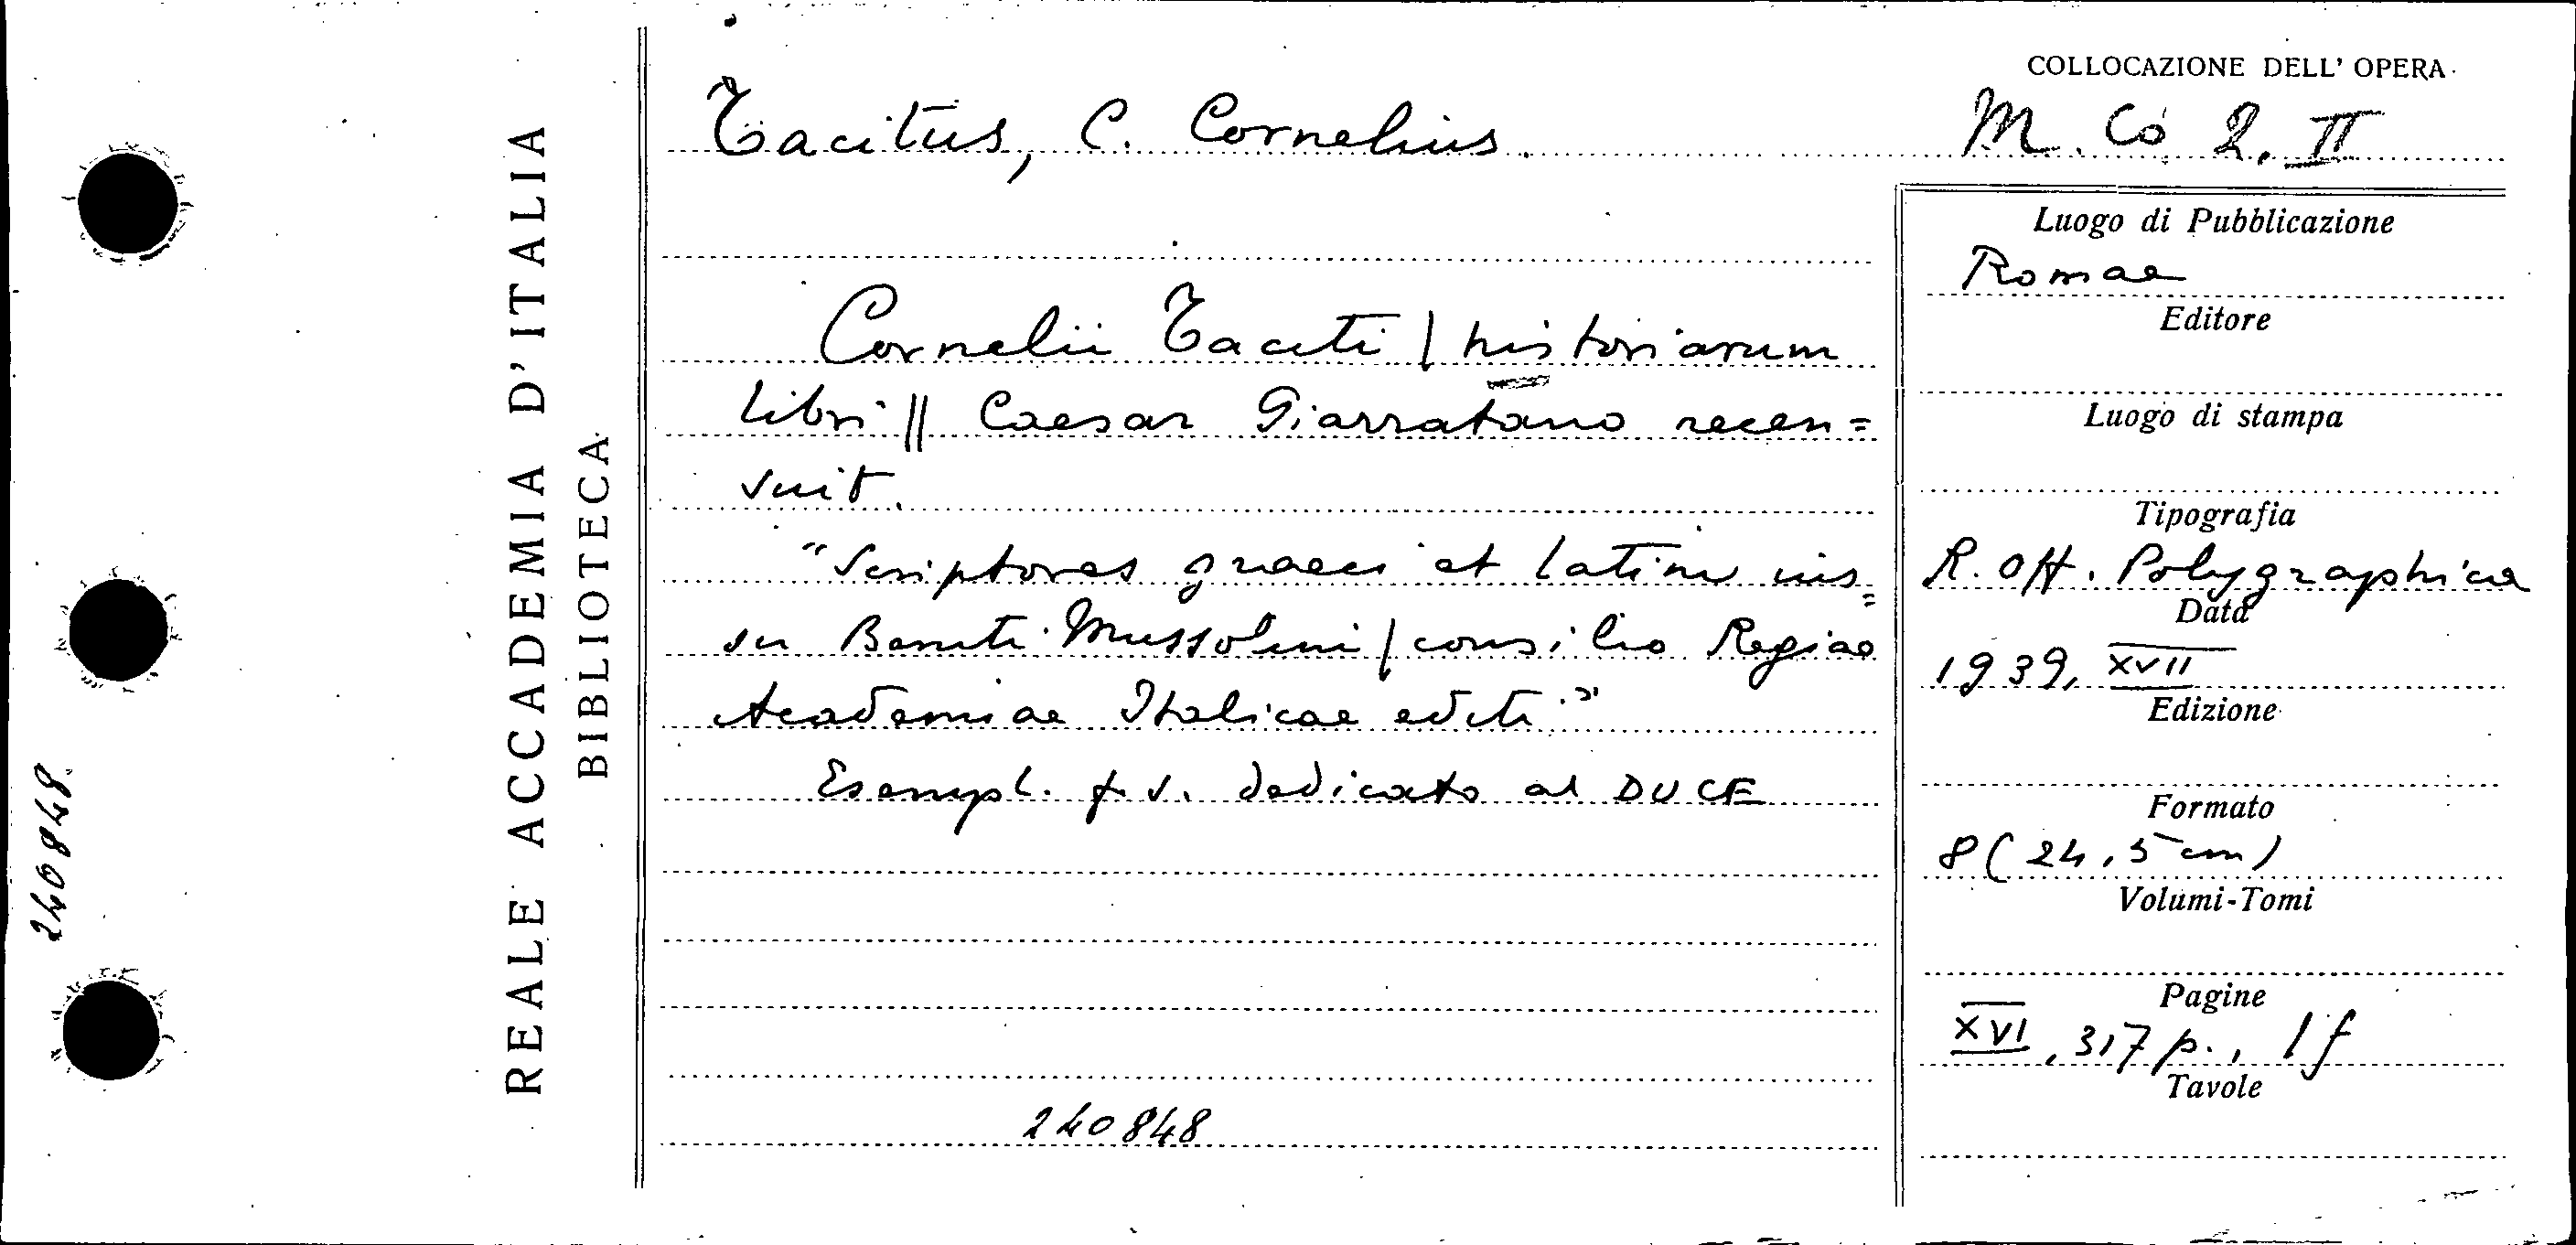 COLLOCAZIONE DELL' OPERA
Tacitus, C. Cornelius.
M. Co 2. II
Cornelii Taciti | historiarum
libri || Caesar Giarratano recen=
suit.
"Scriptores graeci et latini ius=
su Beniti Mussolini / consilio Regiae
Academiae Italicae editi."
Esempl. f. s. dedicato al DUCE
240848
Luogo di Pubblicazione
Romae
Editore
Luogo di stampa
Tipografia
R. Off. Polygraphica
Data
1939, XVII
Edizione
Formato
8 (24,5 cm)
Volumi-Tomi
Pagine
XVI, 317 p., 1 f
Tavole
REALE ACCADEMIA D'ITALIA
BIBLIOTECA
240848